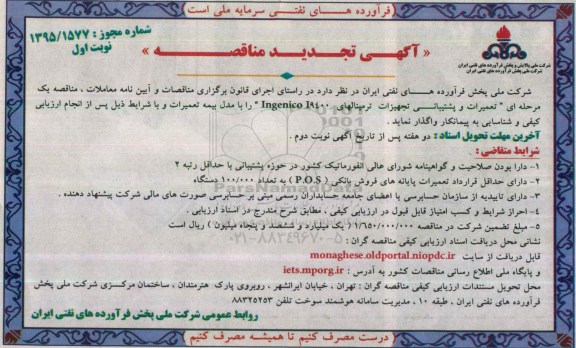 (فرآورده هــای نفتـی سرمایه ملی است)
شماره مجوز : ۱۳۹۵/۱۵۷۷
نوبت اول
« آگهـی تجـدیـد مناقصـه »
شرکت ملی پالایش و پخش فرآورده های نفتی ایران
شرکت ملی پخش فرآورده های نفتی ایران
شرکت ملی پخش فرآورده هــای نفتی ایران در نظر دارد در راستای اجرای قانون برگزاری مناقصات و آیین نامه معاملات ، مناقصه یک
مرحله ای " تعمیرات و پشتیبانـی تجهیزات ترمینالهای Ingenico I۹۴۰۰ " را با مدل بیمه تعمیرات و با شرایط ذیل پس از انجام ارزیابی
کیفی و شناسایی به پیمانکار واگذار نماید .
آخرین مهلت تحویل اسناد : دو هفته پس از تاریخ آگهی نوبت دوم .
شرایط متقاضی :
۱- دارا بودن صلاحیت و گواهینامه شورای عالی انفورماتیک کشور در حوزه پشتیبانی با حداقل رتبه ۲
۲- دارای حداقل قرارداد تعمیرات پایانه های فروش بانکی ( P.O.S ) به تعداد ۱۰۰/۰۰۰ دستگاه
۳- دارای تاییدیه از سازمان حسابرسی یا اعضای جامعه حسابداران رسمی مبنی بر حسابرسی صورت های مالی شرکت پیشنهاد دهنده .
۴- احراز شرایط و کسب امتیاز قابل قبول در ارزیابی کیفی ، مطابق شرح مندرج در اسناد ارزیابی .
۵- مبلغ تضمین شرکت در مناقصه ۱/۶۵۰/۰۰۰/۰۰۰ ( یک میلیارد و ششصد و پنجاه میلیون ) ریال است
نشانی محل دریافت اسناد ارزیابی کیفی مناقصه گران :
قابل دریافت از سایت monaghese.oldportal.niopdc.ir
و پایگاه ملی اطلاع رسانی مناقصات کشور به آدرس : iets.mporg.ir
محل تحویل مستندات ارزیابی کیفی مناقصه گران : تهران ، خیابان ایرانشهر ، روبروی پارک هنرمندان ، ساختمان مرکـزی شرکت ملی پخش
فرآورده های نفتی ایران ، طبقه ۱۰ ، مدیریت سامانه هوشمند سوخت تلفن ۸۸۳۲۵۲۵۳
روابط عمومی شرکت ملی پخش فرآورده های نفتی ایران
(درست مصرف کنیم تا همیشـه مصرف کنیم)
ParsNamadData
۰۲۱-۸۸۳۴۹۶۷۰-۵